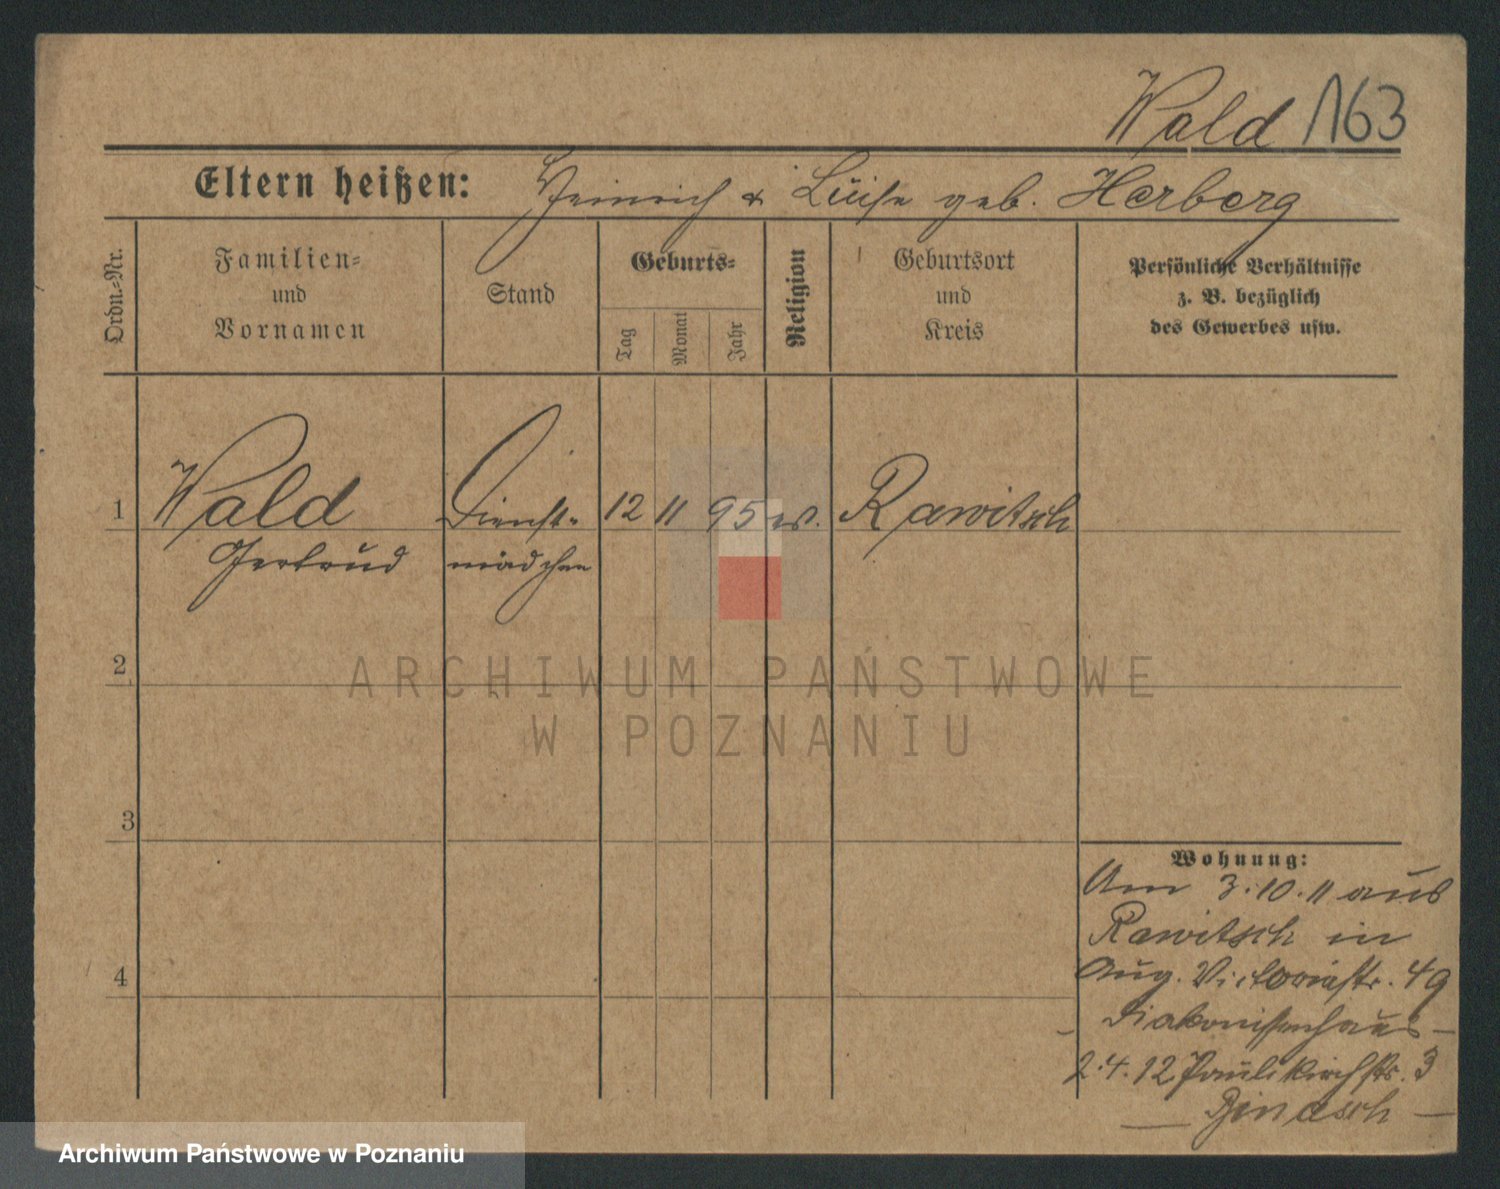 Wald 163
Eltern heißen: Heinrich & Luise geb. Herberg
Ordn.-Nr.
Familien-
und
Vornamen
Stand
Geburts-
Tag
Monat
Jahr
Religion
Geburtsort
und
Kreis
Persönliche Verhältnisse
z. B. bezüglich
des Gewerbes usw.
1 Wald Dienst- 12 11 95 ev. Rawitsch
Gertrud mädchen
2
3
4
Wohnung:
Am 3.10.11 aus
Rawitsch in
Aug. Victoriastr. 49
- Diakonissenhaus -
2.4.12 Paulikirchstr. 3
— —
ARCHIWUM PAŃSTWOWE
W POZNANIU
Archiwum Państwowe w Poznaniu